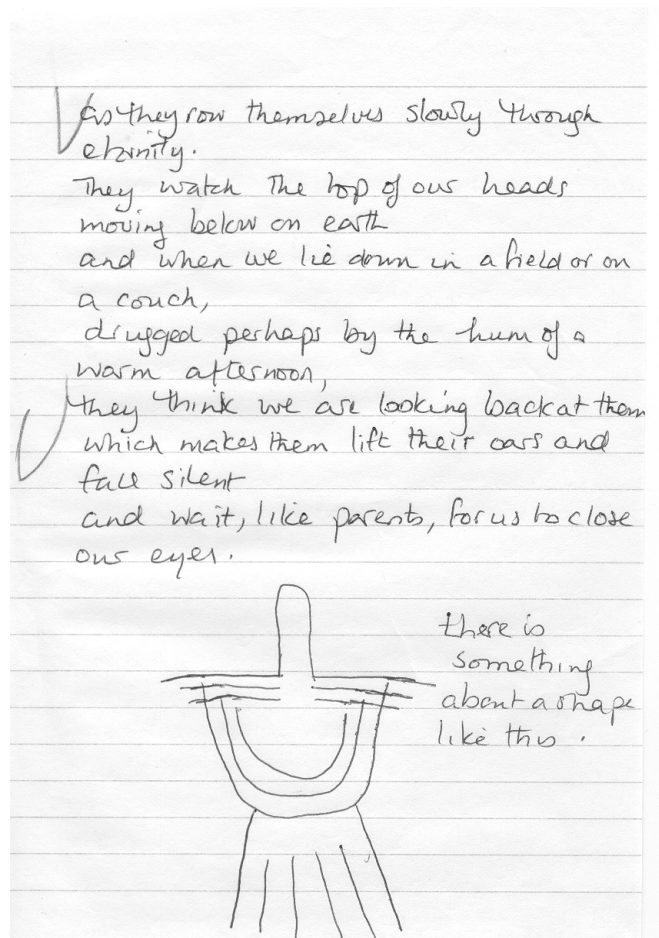 as they row themselves slowly through
eternity.
They watch the top of our heads
moving below on earth
and when we lie down in a field or on
a couch,
drugged perhaps by the hum of a
warm afternoon,
they think we are looking back at them
which makes them lift their oars and
fall silent
and wait, like parents, for us to close
our eyes.
there is
something
about a shape
like this.